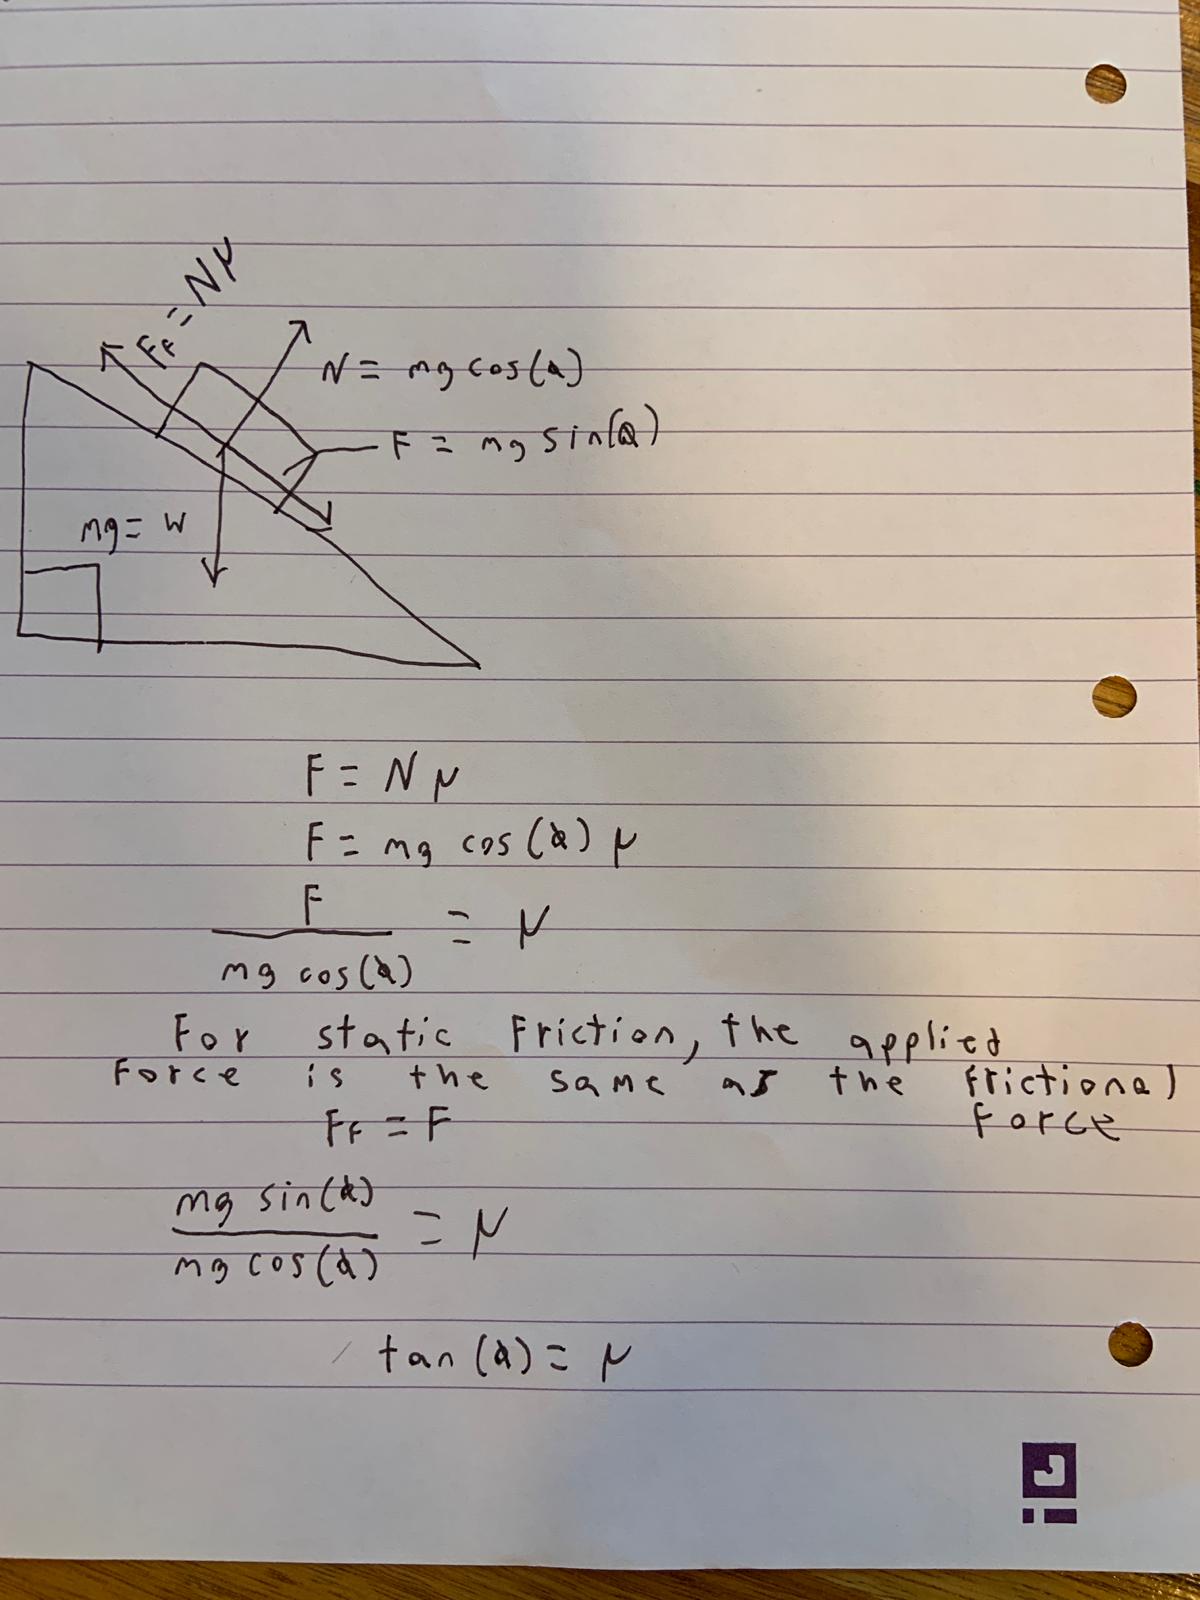 FF = Nμ
N = mg cos(α)
F = mg sin(α)
mg = W
F = N μ
F = mg cos(α) μ
F
mg cos(α) = μ
For static friction, the applied
force is the same as the frictional
force
FF = F
mg sin(α)
mg cos(α) = μ
tan(α) = μ